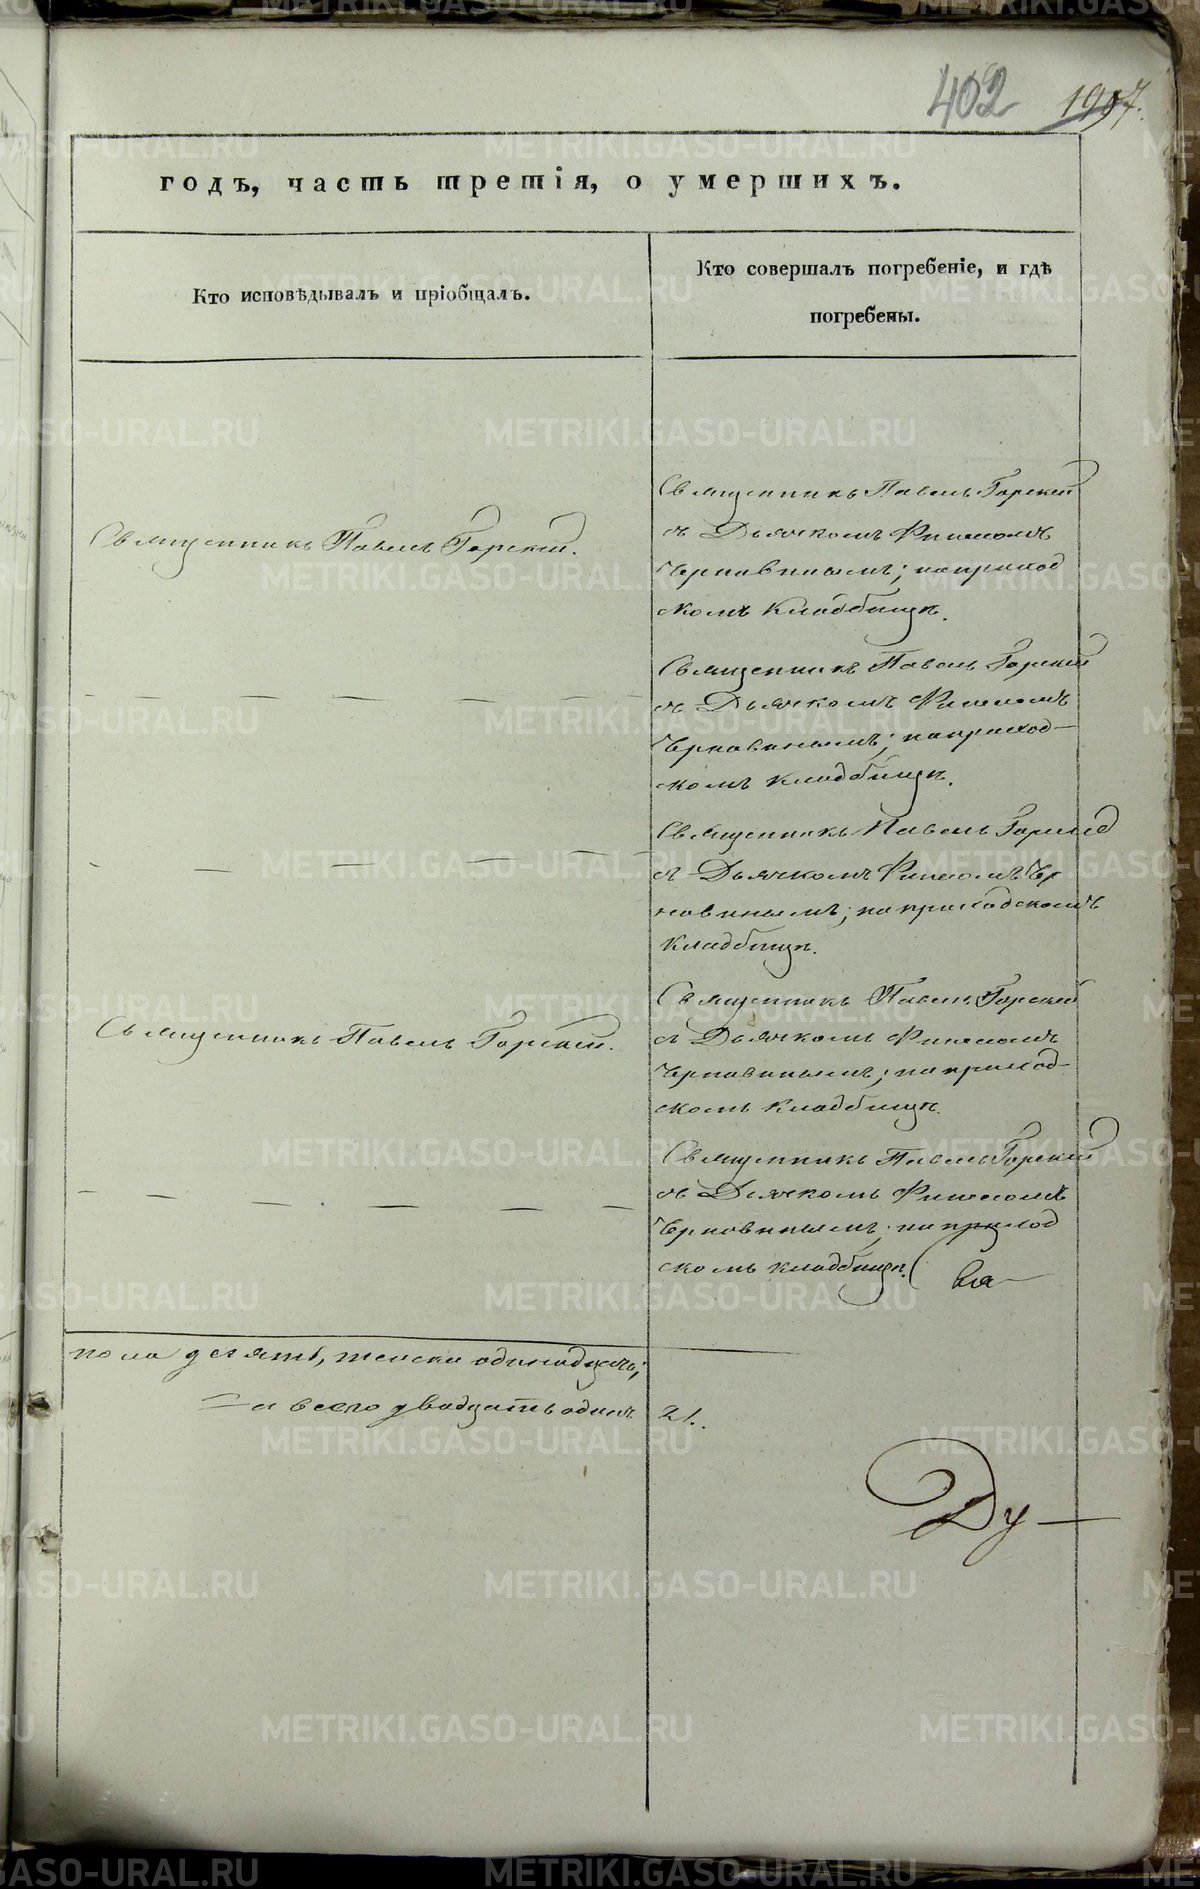 402 1907.
годъ, часть третія, о умершихъ.
Кто исповѣдывалъ и пріобщалъ.
Кто совершалъ погребеніе, и гдѣ
погребены.
Священникъ Павелъ Горскій.
Священникъ Павелъ Горскій
съ Дьячкомъ
Чернавинымъ; на приход
скомъ кладбищѣ.
Священникъ Павелъ Горскій
съ Дьячкомъ
Чернавинымъ; на приход-
скомъ кладбищѣ.
Священникъ Павелъ Горскій
съ Дьячкомъ Чер
навинымъ; на приходскомъ
кладбищѣ.
Священникъ Павелъ Горскій.
Священникъ Павелъ Горскій
съ Дьячкомъ
Чернавинымъ; на приход-
скомъ кладбищѣ.
Священникъ Павелъ Горскій
съ Дьячкомъ
Чернавинымъ; на приход
скомъ кладбищѣ.
пола десять, женска одинадцать;
а всего двадцать одинъ 21.
Ду—
METRIKI.GASO-URAL.RU